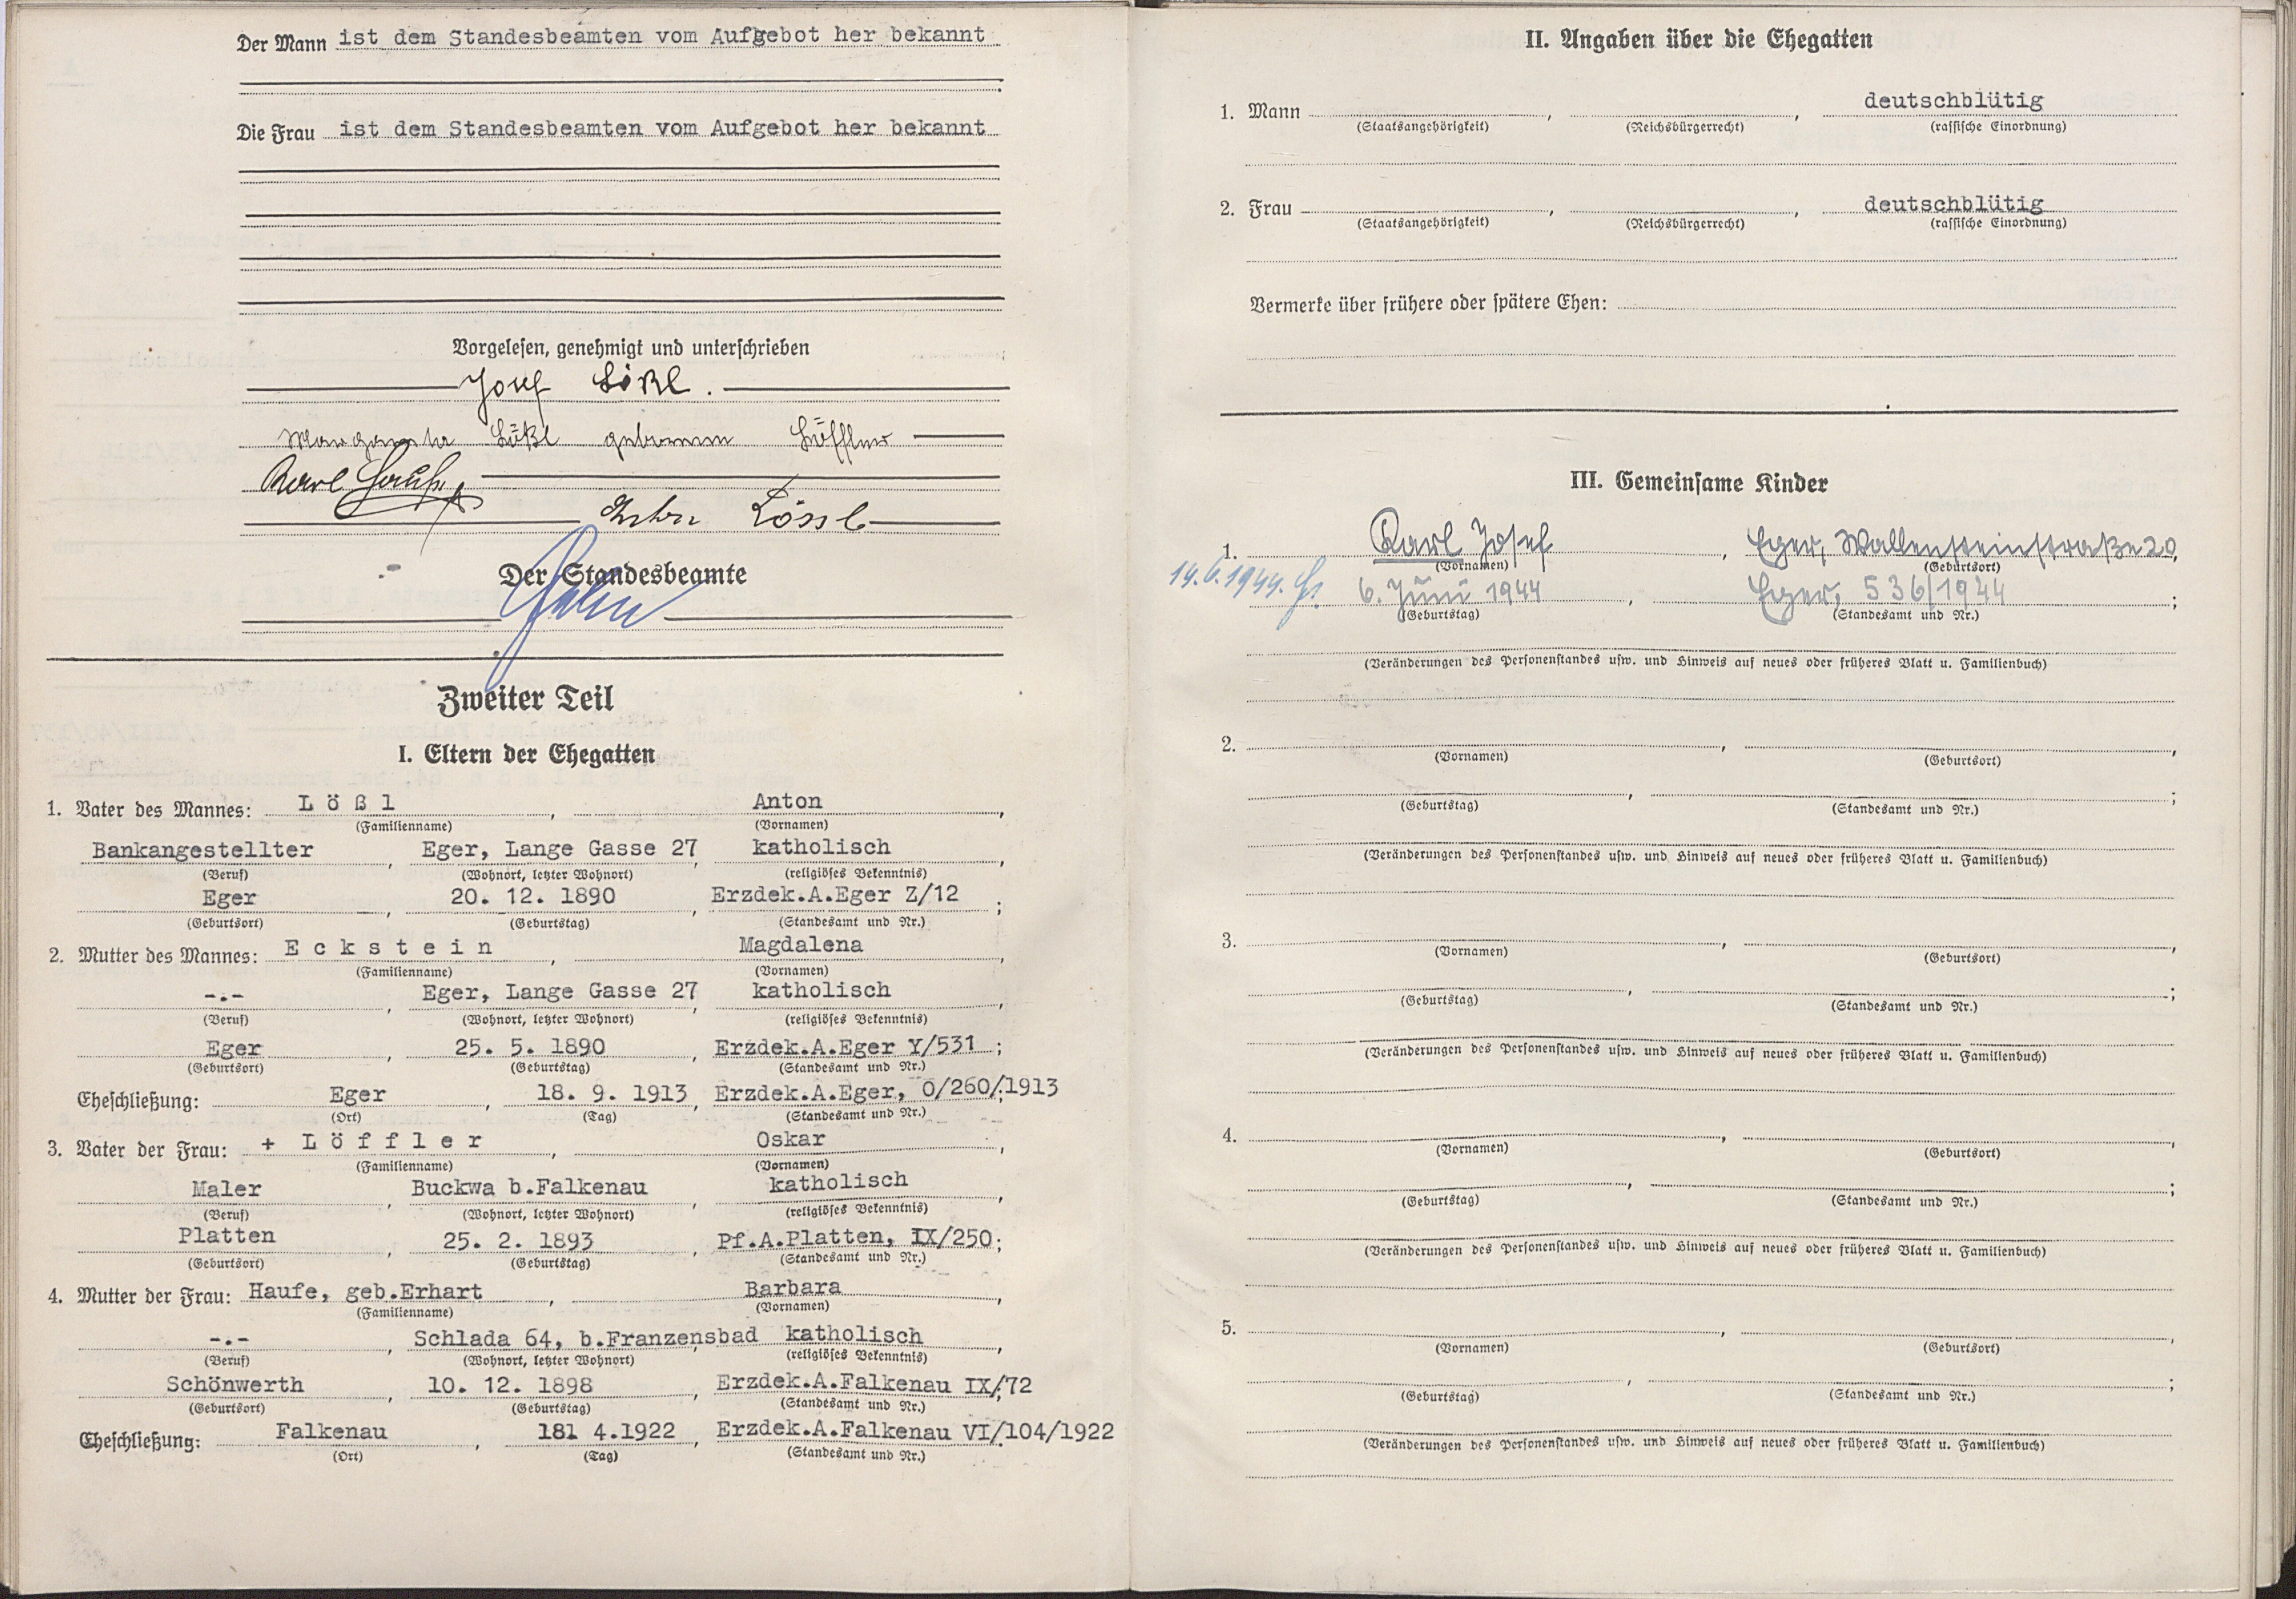 Der Mann ist dem Standesbeamten vom Aufgebot her bekannt
Die Frau ist dem Standesbeamten vom Aufgebot her bekannt
Vorgelesen, genehmigt und unterschrieben
Josef Lößl.
Margareta Lößl geborene Löffler
Karl
Lössl
Der Standesbeamte
Zweiter Teil
I. Eltern der Ehegatten
1. Vater des Mannes: L ö ß l , Anton ,
(Familienname) (Vornamen)
Bankangestellter , Eger, Lange Gasse 27 , katholisch ,
(Beruf) (Wohnort, letzter Wohnort) (religiöses Bekenntnis)
Eger , 20. 12. 1890 , Erzdek.A.Eger Z/12 ;
(Geburtsort) (Geburtstag) (Standesamt und Nr.)
2. Mutter des Mannes: E c k s t e i n , Magdalena ,
(Familienname) (Vornamen)
-.- , Eger, Lange Gasse 27 , katholisch ,
(Beruf) (Wohnort, letzter Wohnort) (religiöses Bekenntnis)
Eger , 25. 5. 1890 , Erzdek.A.Eger Y/531 ;
(Geburtsort) (Geburtstag) (Standesamt und Nr.)
Eheschließung: Eger , 18. 9. 1913 , Erzdek.A.Eger, O/260/1913 ;
(Ort) (Tag) (Standesamt und Nr.)
3. Vater der Frau: + L ö f f l e r , Oskar ,
(Familienname) (Vornamen)
Maler , Buckwa b.Falkenau , katholisch ,
(Beruf) (Wohnort, letzter Wohnort) (religiöses Bekenntnis)
Platten , 25. 2. 1893 , Pf.A.Platten, IX/250 ;
(Geburtsort) (Geburtstag) (Standesamt und Nr.)
4. Mutter der Frau: Haufe, geb.Erhart , Barbara ,
(Familienname) (Vornamen)
-.- , Schlada 64, b.Franzensbad , katholisch ,
(Beruf) (Wohnort, letzter Wohnort) (religiöses Bekenntnis)
Schönwerth , 10. 12. 1898 , Erzdek.A.Falkenau IX/72 ;
(Geburtsort) (Geburtstag) (Standesamt und Nr.)
Eheschließung: Falkenau , 181 4.1922 , Erzdek.A.Falkenau VI/104/1922 .
(Ort) (Tag) (Standesamt und Nr.)
II. Angaben über die Ehegatten
1. Mann , , deutschblütig
(Staatsangehörigkeit) (Reichsbürgerrecht) (rassische Einordnung)
2. Frau , , deutschblütig
(Staatsangehörigkeit) (Reichsbürgerrecht) (rassische Einordnung)
Vermerke über frühere oder spätere Ehen:
III. Gemeinsame Kinder
1. Karl Josef , Eger, Wallensteinstraße 20,
(Vornamen) (Geburtsort)
14.6.1944. 6. Juni 1944 , Eger, 536/1944 ;
(Geburtstag) (Standesamt und Nr.)
(Veränderungen des Personenstandes usw. und Hinweis auf neues oder früheres Blatt u. Familienbuch)
2. , ,
(Vornamen) (Geburtsort)
, ;
(Geburtstag) (Standesamt und Nr.)
(Veränderungen des Personenstandes usw. und Hinweis auf neues oder früheres Blatt u. Familienbuch)
3. , ,
(Vornamen) (Geburtsort)
, ;
(Geburtstag) (Standesamt und Nr.)
(Veränderungen des Personenstandes usw. und Hinweis auf neues oder früheres Blatt u. Familienbuch)
4. , ,
(Vornamen) (Geburtsort)
, ;
(Geburtstag) (Standesamt und Nr.)
(Veränderungen des Personenstandes usw. und Hinweis auf neues oder früheres Blatt u. Familienbuch)
5. , ,
(Vornamen) (Geburtsort)
, ;
(Geburtstag) (Standesamt und Nr.)
(Veränderungen des Personenstandes usw. und Hinweis auf neues oder früheres Blatt u. Familienbuch)